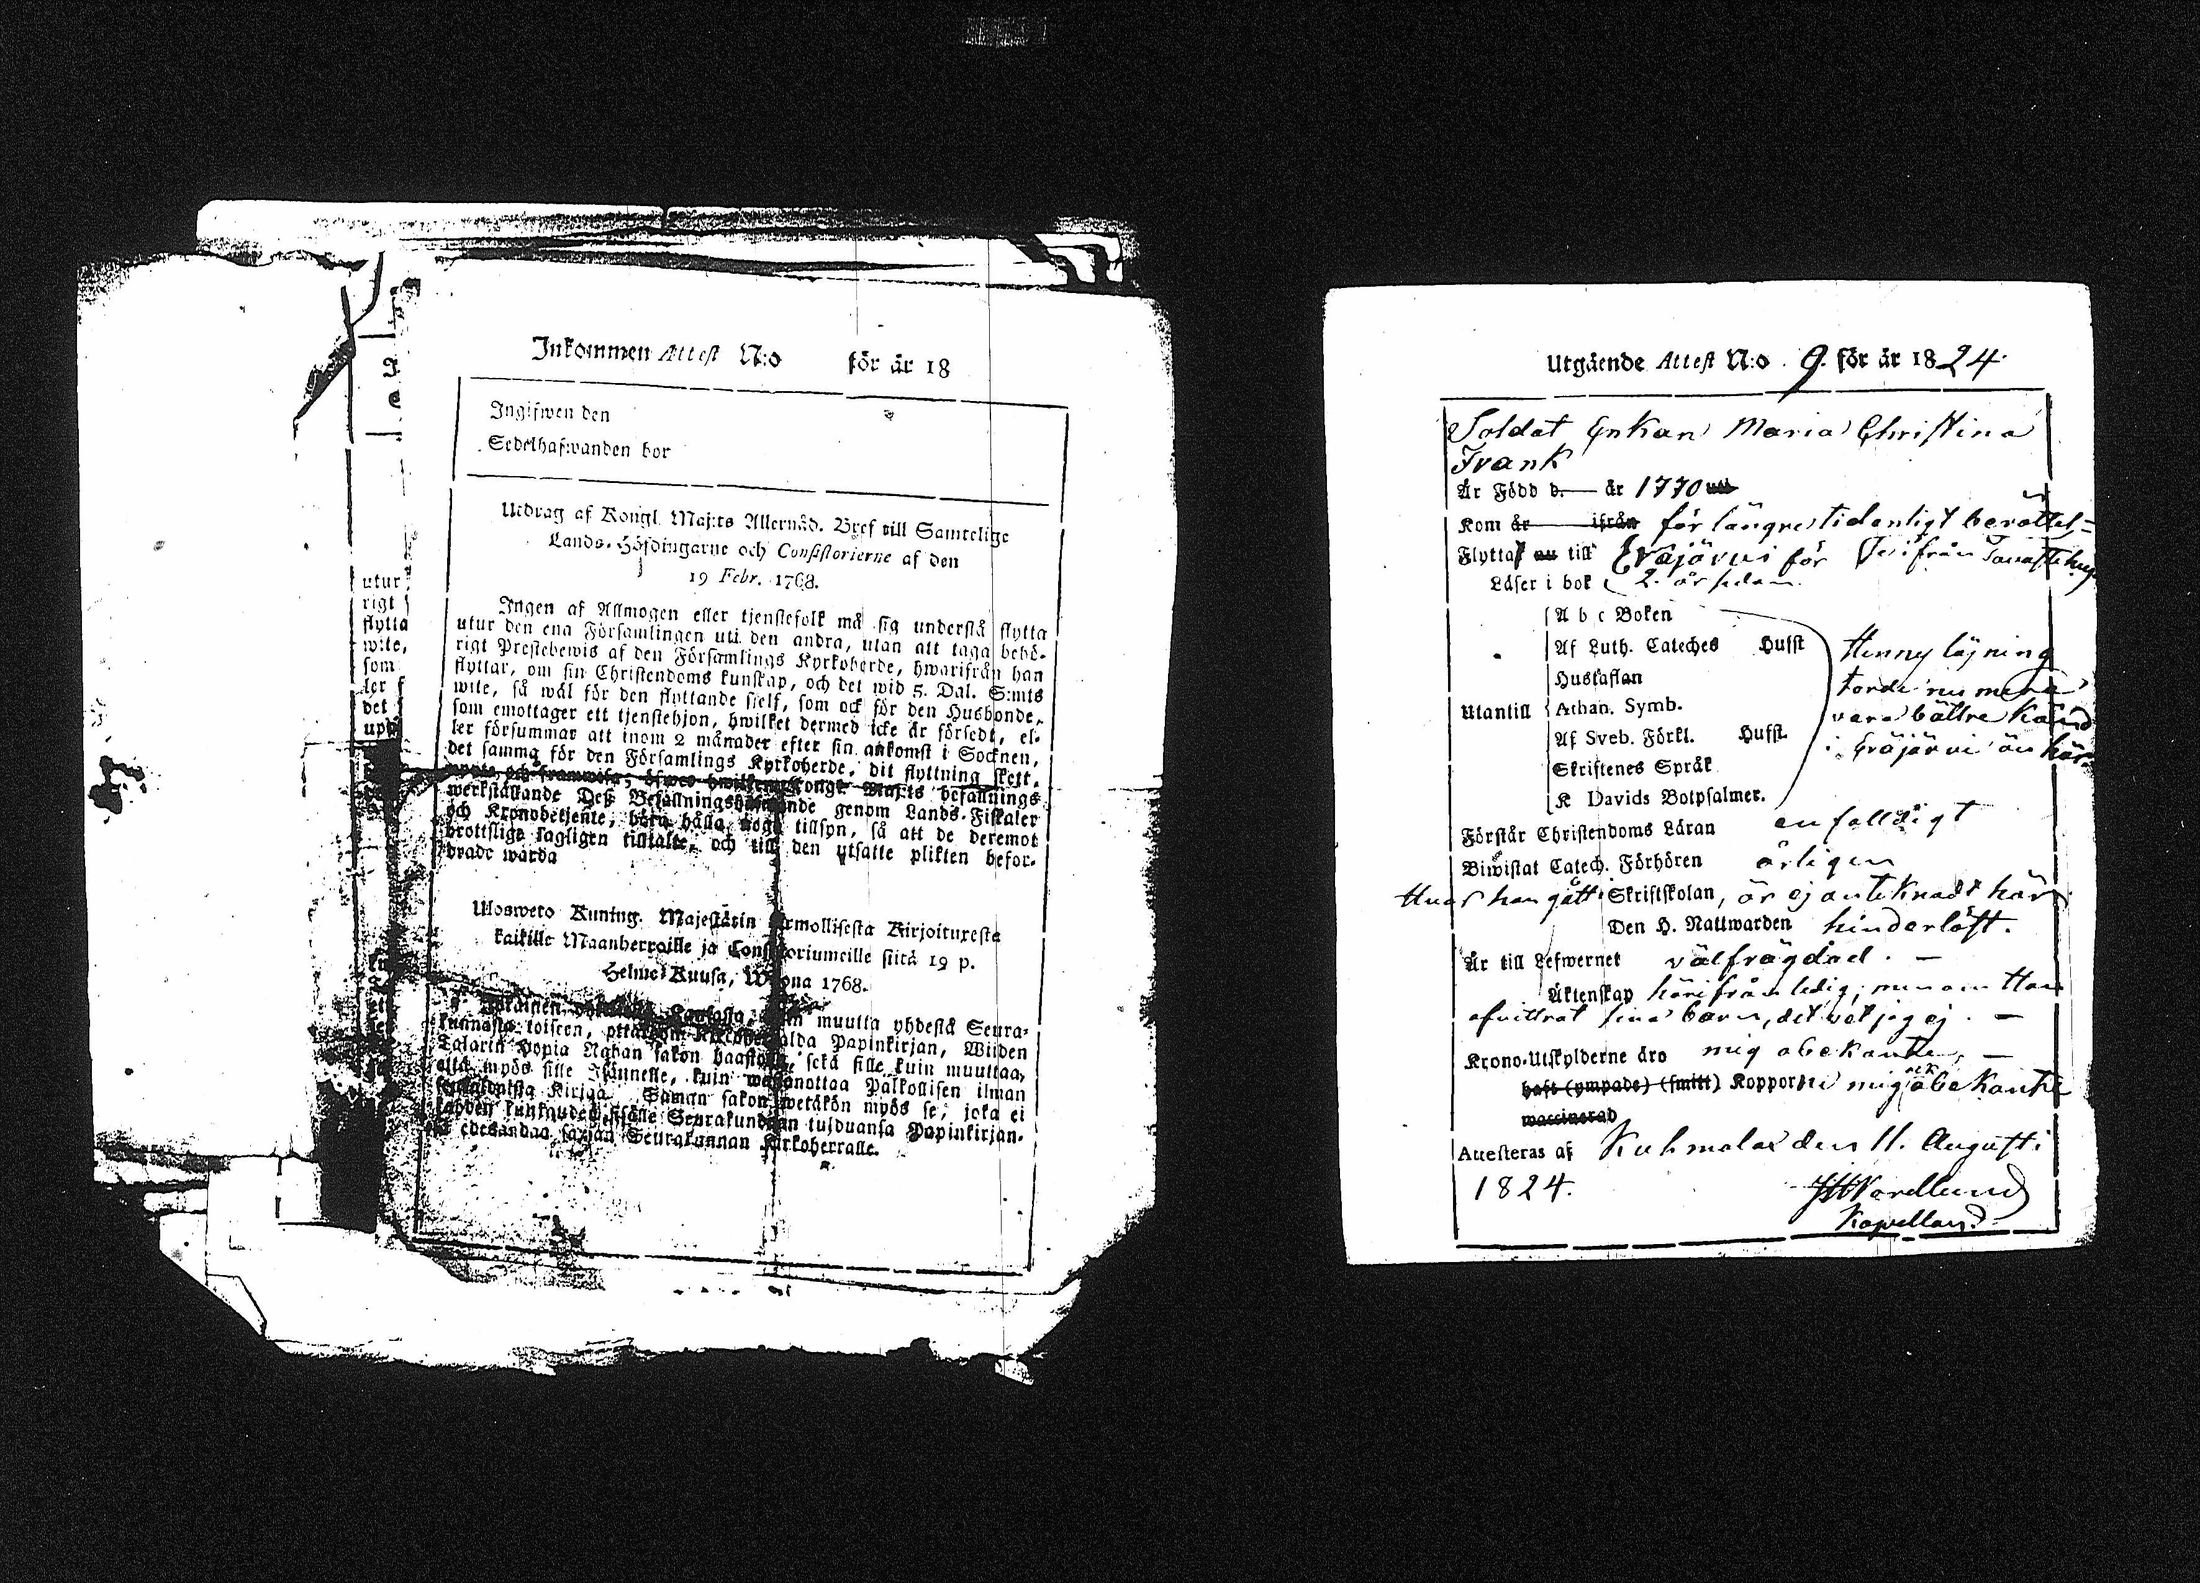 Inkommen Attest N:o för år 18
Ingifwen den
Sedelhafwanden bor
Utdrag af Kongl. Maj:ts Allernåd. Bref till Samtelige
Lands-Höfdingarne och Consistorierne af den
19 Febr. 1768.
Ingen af Allmogen eller tjenstefolk må sig understå flytta
utur den ena Församlingen uti den andra, utan att taga behö-
rigt Prestebewis af den Församlings Kyrkoherde, hwarifrån han
flyttar, om sin Christendoms kunskap, och det wid 5. Dal. S:mts
wite, så wäl för den flyttande sjelf, som ock för den Husbonde,
som emottager ett tjenstehjon, hwilket dermed icke är försedt, el-
ler försummar att inom 2 månader efter sin ankomst i Socknen,
det samma för den Församlings Kyrkoherde, dit flyttning skett,
och framwisa, Kongl. Maj:ts befallnings
werkställande Deß Befallningshafwande genom Lands-Fiskaler
och Kronobetjente, böra hålla noga tillsyn, så att de deremot
brottslige lagligen tilltalte, och till den utsatte plikten befor-
drade warda
Ulosweto Kuning. Majestätin Armollisesta Kirjoituxesta
kaikille Maanherroille ja Consistoriumeille siitä 19 p.
Helme-Kuusa, Wuona 1768.
muutta yhdestä Seura-
kunnasta toiseen, Papinkirjan, Wiiden
Talarin Hopia Rahan sakon haastolla, sekä sille kuin muuttaa,
että myös sille Isännelle, kuin wastanottaa Palkollisen ilman
Kirjaa. Saman sakon wetäkön myös se, joka ei
kahden kuukauden sisälle Seurakundaan tulduansa Papinkirjan-
sa edesandaa saman Seurakunnan Kirkoherralle.
utur
rigt
flytta
wite,
som
ler f
det
upp
Utgående Attest N:o 9. för år 1824.
Soldat Enkan Maria Christina
Frank
Är Född d. år 1770 uti
Kom år ifrån för längre tid enligt berättel=
Flyttat nu till Eräjärvi för se ifrån Tavastehus
Läser i bok 2. år sedan.
A b c Boken
Af Luth. Cateches Hufst
Hustaflan
Utantill Athan. Symb.
Af Sveb. Förkl. Hufst.
Skriftenes Språk
K Davids Botpsalmer.
Hennes läsning
torde nu mera
vara bättre känd
i Eräjärvi än här.
Förstår Christendoms Läran enfaldigt
Biwistat Catech. Förhören årligen
Huar hon gått i Skriftskolan, är ej antecknadt här
Den H. Nattwarden hinderlöst.
Är till Lefwernet välfrägdad. —
Äktenskap härifrån ledig; men om Hon
afvittrat sina barn, det vet jag ej. —
Krono-Utskylderne äro mig obekante, —
haft (ympade) (smitt) Kopporne mig ock obekante
waccinerad
Attesteras af Kuhmalax den 11. Augusti
1824.
Kapellan.